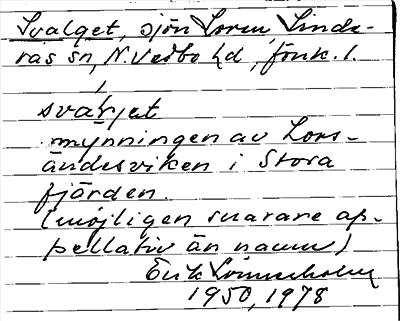 Svalget, sjön Loren, Linde-
rås sn, N. Vedbo hd, Jönk. l.
svaljet
mynningen av Lors-
ändesviken i Stora
fjärden.
(möjligen snarare ap-
pellativ än namn)
Erik Linneholm
1950, 1978